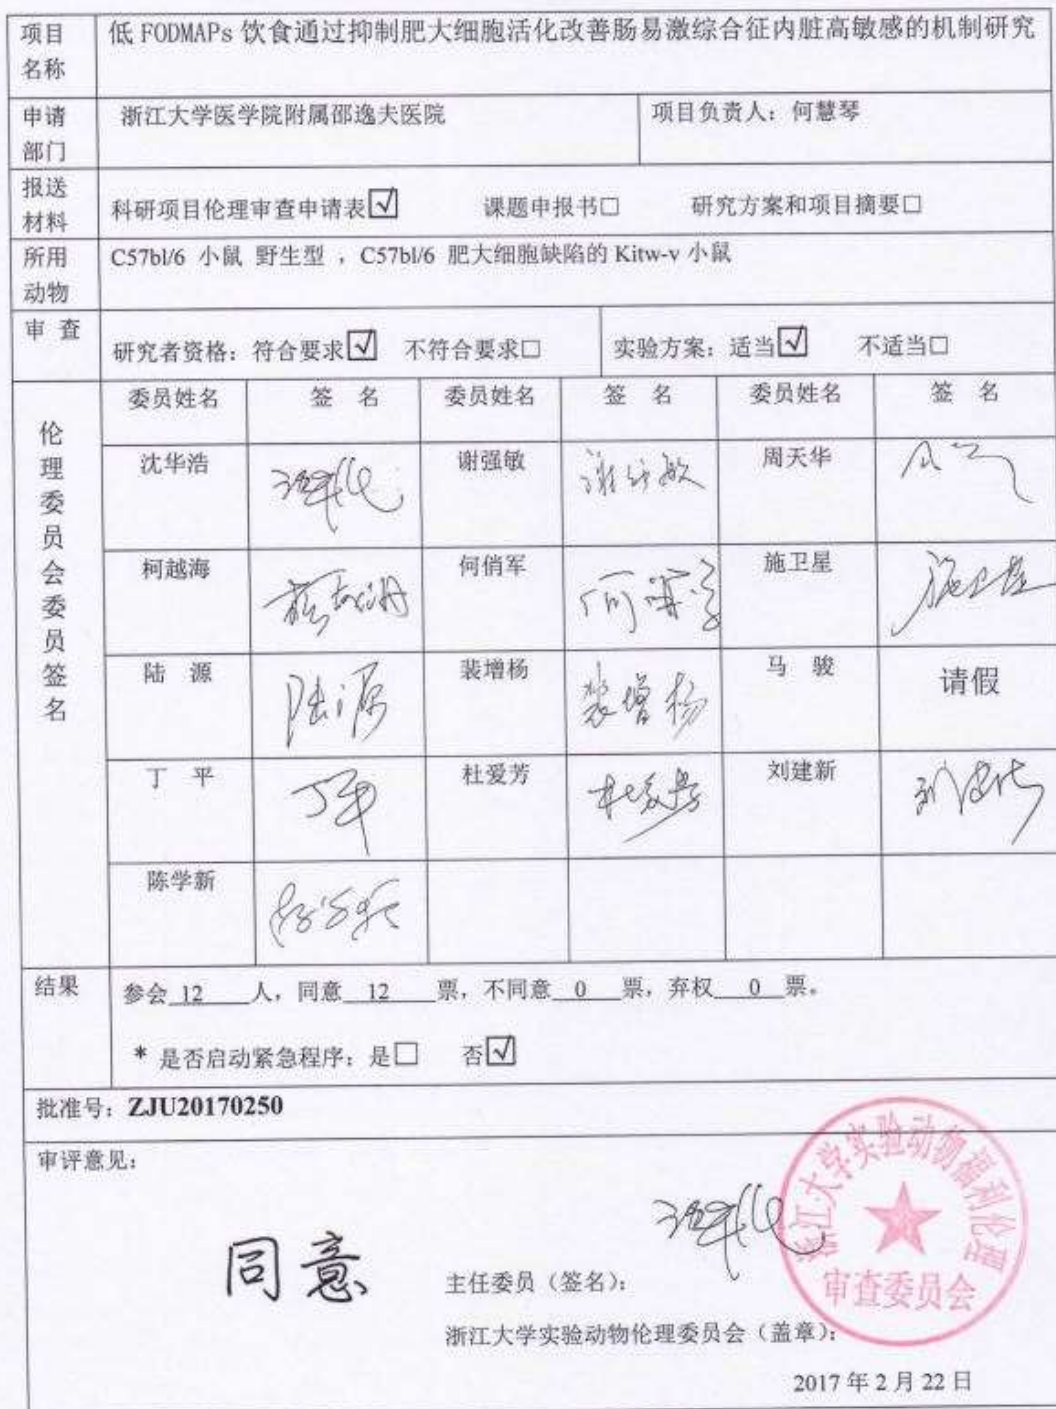 项目名称 低 FODMAPs 饮食通过抑制肥大细胞活化改善肠易激综合征内脏高敏感的机制研究
申请部门 浙江大学医学院附属邵逸夫医院 项目负责人：何慧琴
报送材料 科研项目伦理审查申请表☑ 课题申报书□ 研究方案和项目摘要□
所用动物 C57bl/6 小鼠 野生型 ，C57bl/6 肥大细胞缺陷的 Kitw-v 小鼠
审 查 研究者资格：符合要求☑ 不符合要求□ 实验方案：适当☑ 不适当□
伦理委员会委员签名
委员姓名 签 名 委员姓名 签 名 委员姓名 签 名
沈华浩 谢强敏 周天华
柯越海 何俏军 施卫星 施卫星
陆 源 陆源 裴增杨 裴增杨 马 骏 请假
丁 平 丁平 杜爱芳 杜爱芳 刘建新
陈学新
结果 参会 12 人，同意 12 票，不同意 0 票，弃权 0 票。
* 是否启动紧急程序：是□ 否☑
批准号：ZJU20170250
审评意见：
同意
主任委员（签名）：
浙江大学实验动物伦理委员会（盖章）：
浙江大学实验动物福利伦理
审查委员会
2017 年 2 月 22 日